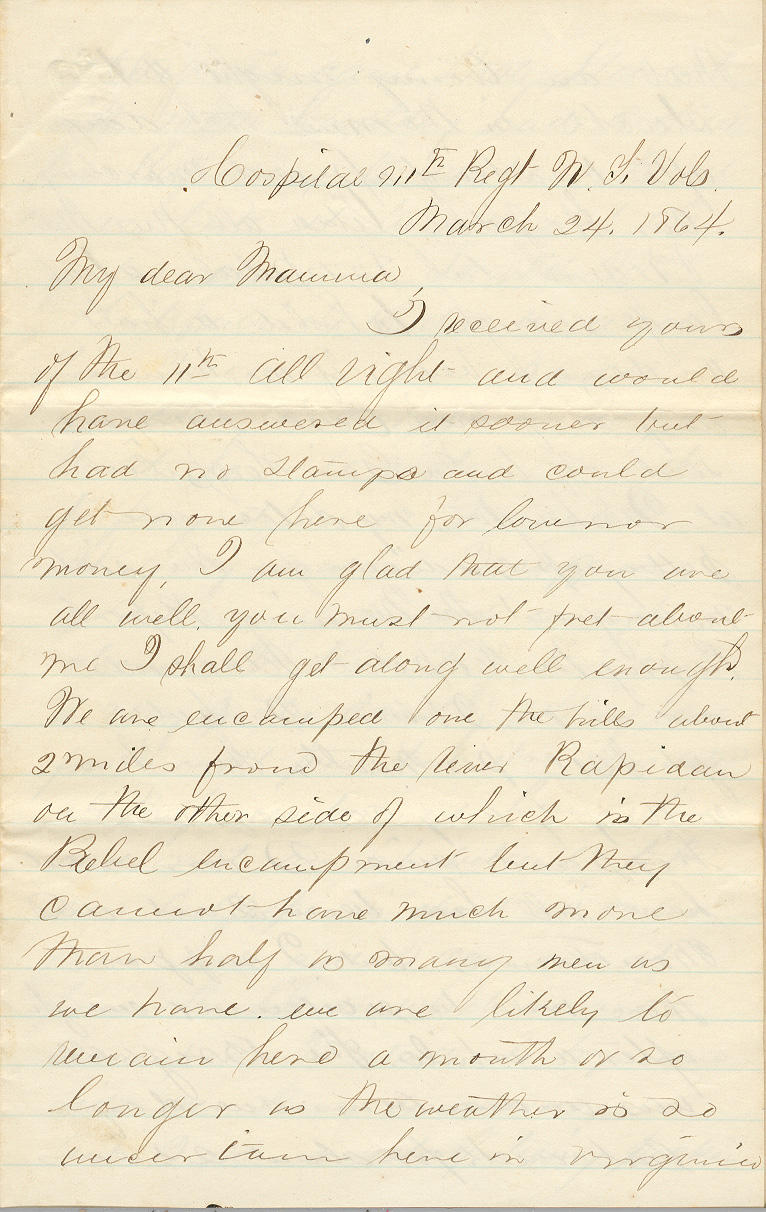 Hospital 111th Regt N. Y. Vols.
March 24. 1864.
My dear Mamma,
I received yours
of the 11th all right and would
have answered it sooner but
had no stamps and could
get none here for love nor
money, I am glad that you are
all well. you must not fret about
me I shall get along well enough.
We are encamped one the hills about
2 miles from the river Rapidan
on the other side of which is the
Rebel encampment but they
cannot have much more
than half as many men as
we have. we are likely to
remain here a month or so
longer as the weather is so
uncertain here in virginia